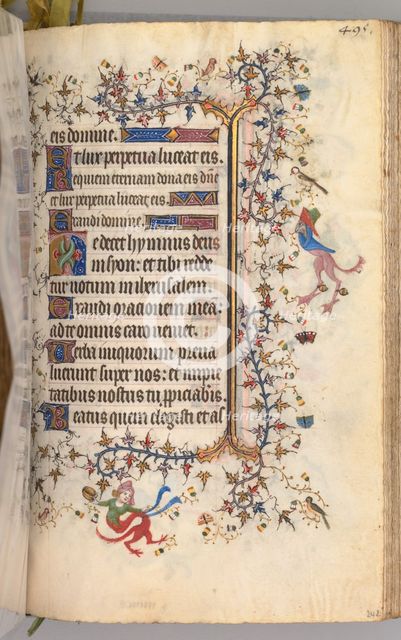 495.
eis domine.
Et lux perpetua luceat eis.
Requiem eternam dona eis dñe
et lux perpetua luceat eis.
Exaudi domine.
Te decet hympnus deus
in syon: et tibi redde
tur uotum in iherusalem.
Exaudi orationem mea:
ad te omnis caro ueniet.
Verba iniquorum preua
luerunt super nos: et impie
tatibus nostris tu
Beatus quem elegisti et as
242
Heritage
Heritage
Heritage
Heritage